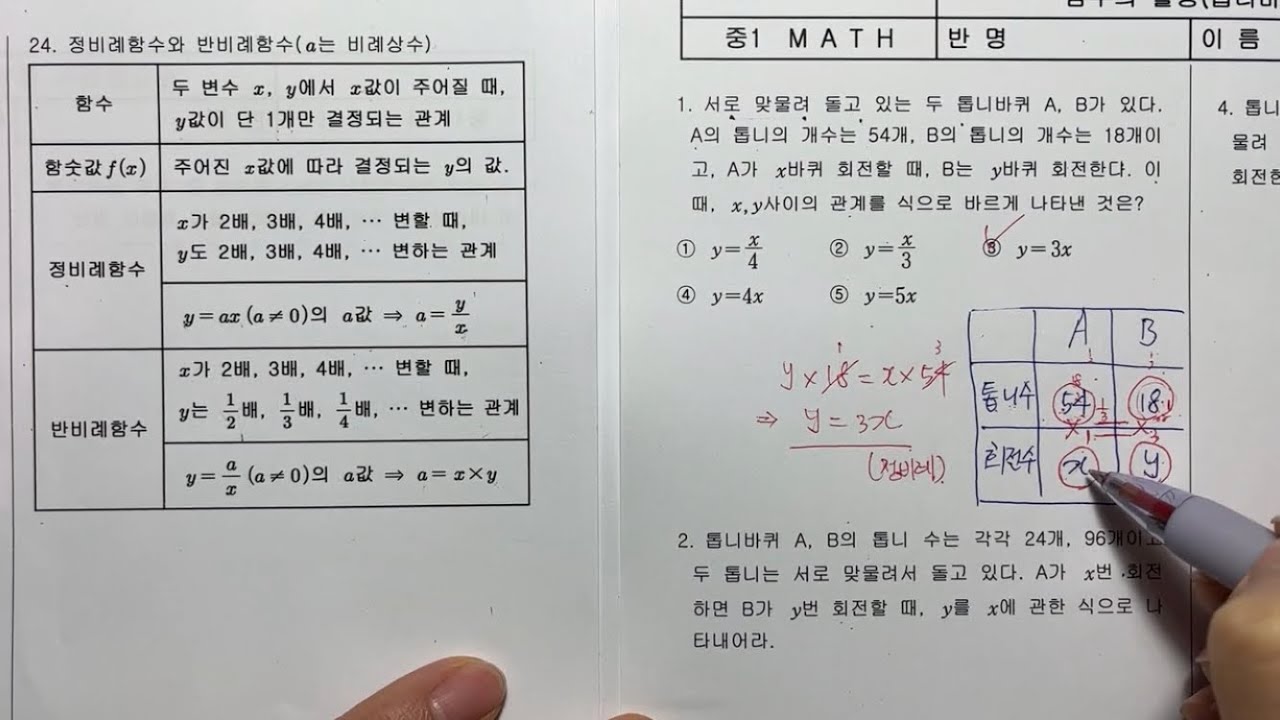 24. 정비례함수와 반비례함수(a는 비례상수)
함수
두 변수 x, y에서 x값이 주어질 때,
y값이 단 1개만 결정되는 관계
함숫값 f(x)
주어진 x값에 따라 결정되는 y의 값.
정비례함수
x가 2배, 3배, 4배, ⋯ 변할 때,
y도 2배, 3배, 4배, ⋯ 변하는 관계
y=ax (a≠0)의 a값 ⇒ a=y/x
반비례함수
x가 2배, 3배, 4배, ⋯ 변할 때,
y는 1/2배, 1/3배, 1/4배, ⋯ 변하는 관계
y=a/x (a≠0)의 a값 ⇒ a=x×y
중1 MATH
반 명
이 름
1. 서로 맞물려 돌고 있는 두 톱니바퀴 A, B가 있다.
A의 톱니의 개수는 54개, B의 톱니의 개수는 18개이
고, A가 x바퀴 회전할 때, B는 y바퀴 회전한다. 이
때, x,y사이의 관계를 식으로 바르게 나타낸 것은?
① y=x/4 ② y=x/3 ③ y=3x
④ y=4x ⑤ y=5x
y×18=x×54
1 3
⇒ y=3x
(정비례)
A B
톱니수 54 18
회전수 x y
2. 톱니바퀴 A, B의 톱니 수는 각각 24개, 96개이고
두 톱니는 서로 맞물려서 돌고 있다. A가 x번 회전
하면 B가 y번 회전할 때, y를 x에 관한 식으로 나
타내어라.
4. 톱니
물려
회전한